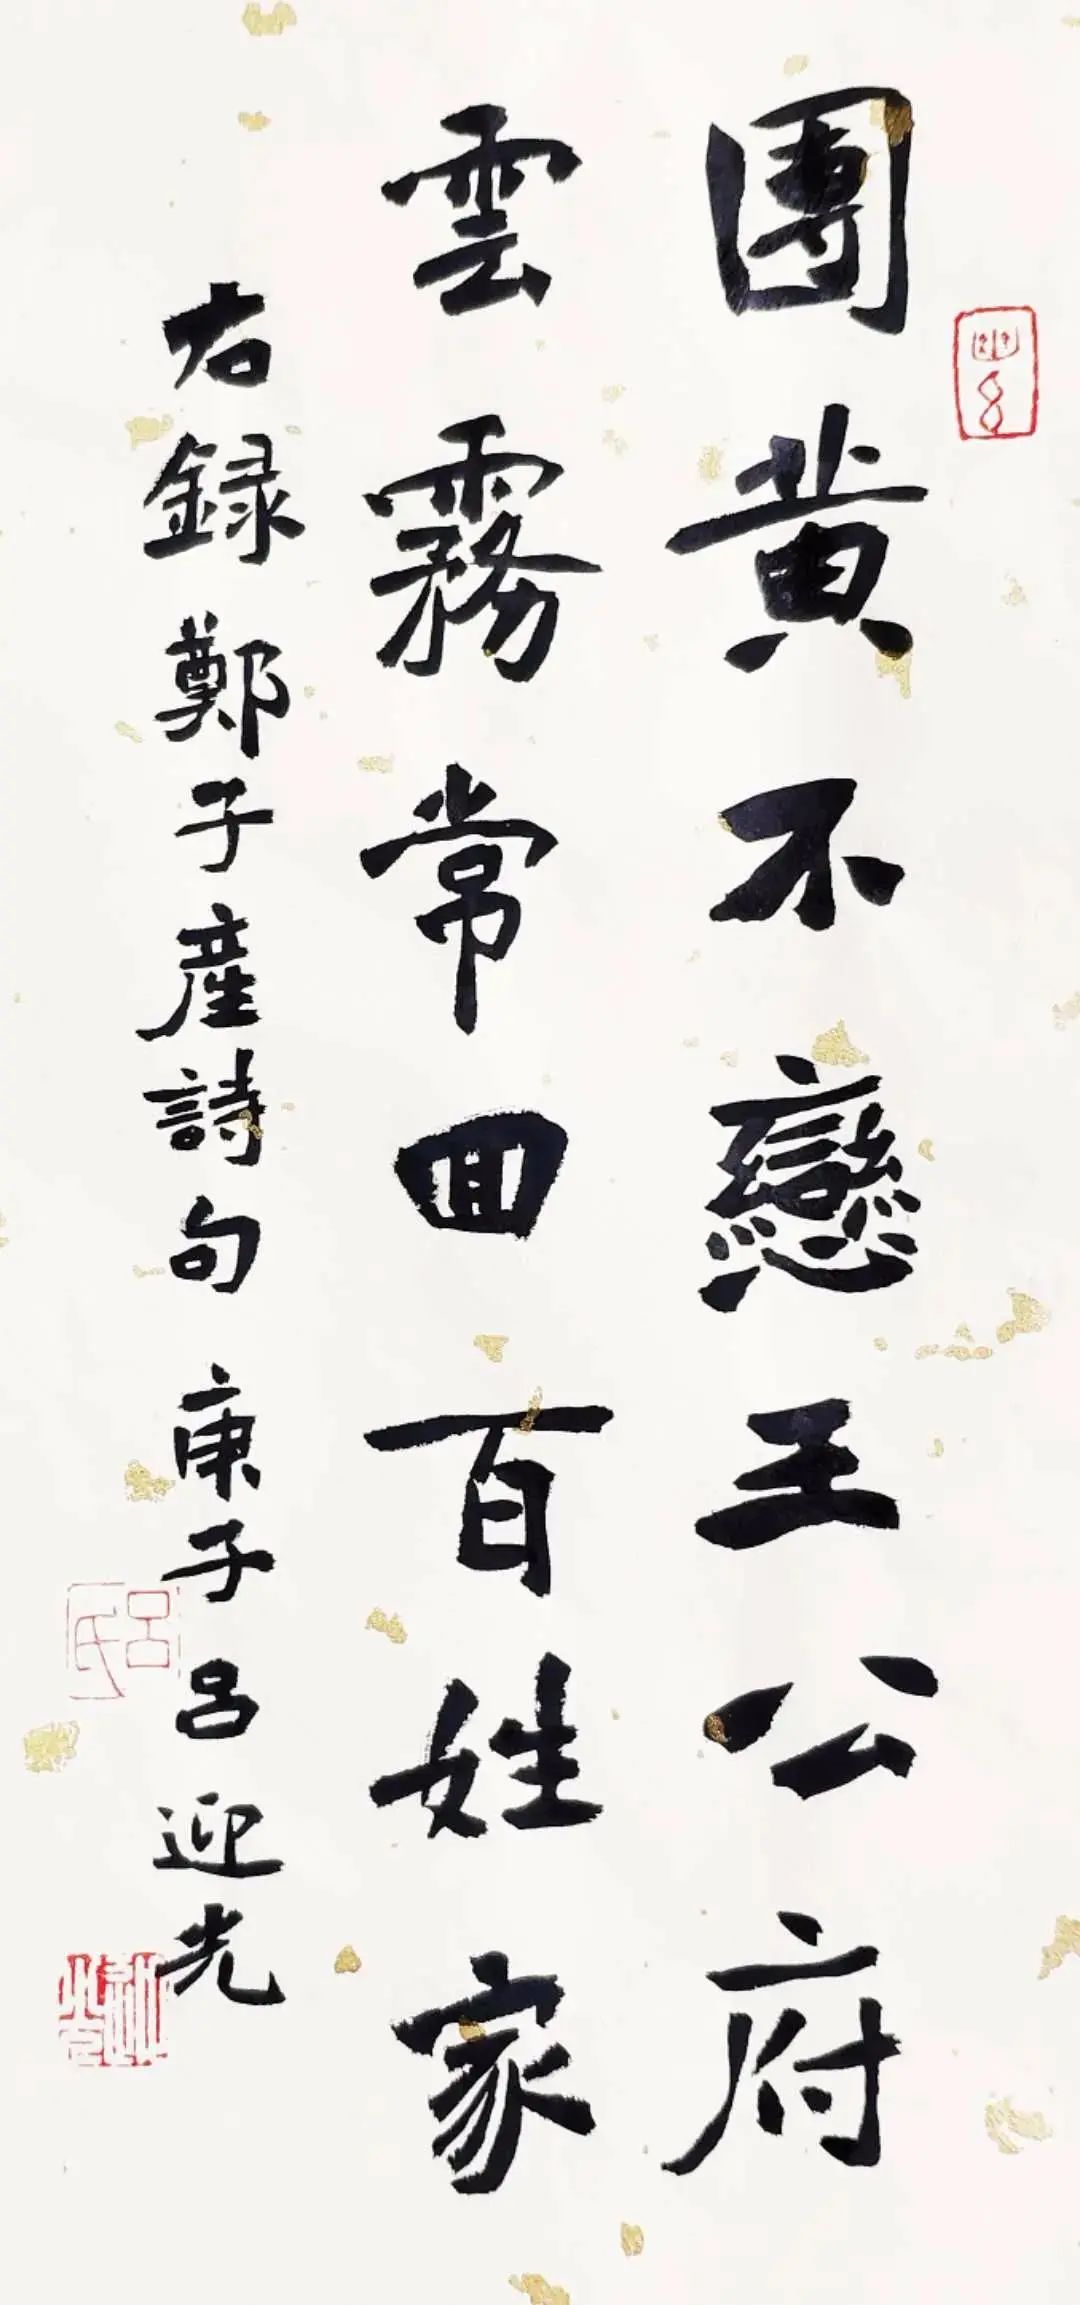 團黄不戀王公府
雲霧常回百姓家
右録鄭子産詩句 庚子吕迎光
吕氏